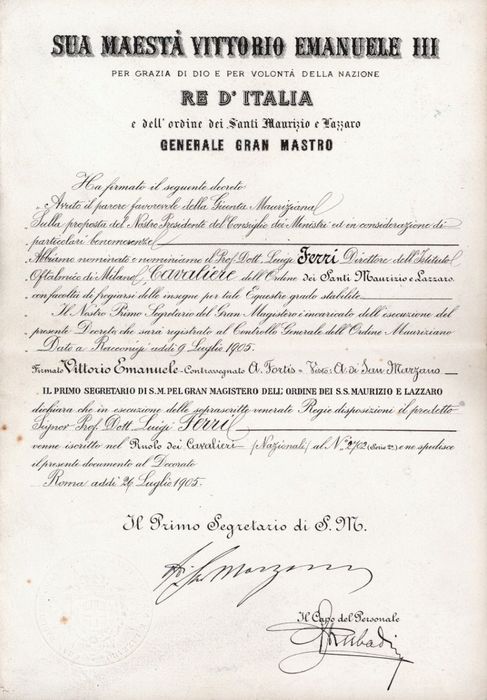 SUA MAESTÀ VITTORIO EMANUELE III
PER GRAZIA DI DIO E PER VOLONTÀ DELLA NAZIONE
RE D'ITALIA
e dell'ordine dei Santi Maurizio e Lazzaro
GENERALE GRAN MASTRO
Ha firmato il seguente decreto
Avuto il parere favorevole della Giunta Mauriziana
Sulla proposta del Nostro Presidente del Consiglio dei Ministri ed in considerazione di
particolari benemerenze
Abbiamo nominato e nominiamo il Prof. Dott. Luigi Ferri Direttore dell'Istituto
Oftalmico di Milano, Cavaliere dell'Ordine dei Santi Maurizio e Lazzaro
con facoltà di fregiarsi delle insegne per tale Equestre grado stabilite
Il Nostro Primo Segretario del Gran Magistero è incaricato dell'esecuzione del
presente Decreto che sarà registrato al Controllo Generale dell'Ordine Mauriziano
Dato a Racconigi addì 9 Luglio 1905.
Firmato Vittorio Emanuele - Contrassegnato A. Fortis = Visto: A. di San Marzano
IL PRIMO SEGRETARIO DI S. M. PEL GRAN MAGISTERO DELL'ORDINE DEI S.S. MAURIZIO E LAZZARO
dichiara che in esecuzione delle soprascritte venerate Regie disposizioni il predetto
Signor Prof. Dott. Luigi Ferri
venne iscritto nel Ruolo dei Cavalieri (Nazionali) al N. 2762 (Serie 2ª) e ne spedisce
il presente documento al Decorato
Roma addì 26 Luglio 1905.
Il Primo Segretario di S. M.
A. di San Marzano
Il Capo del Personale